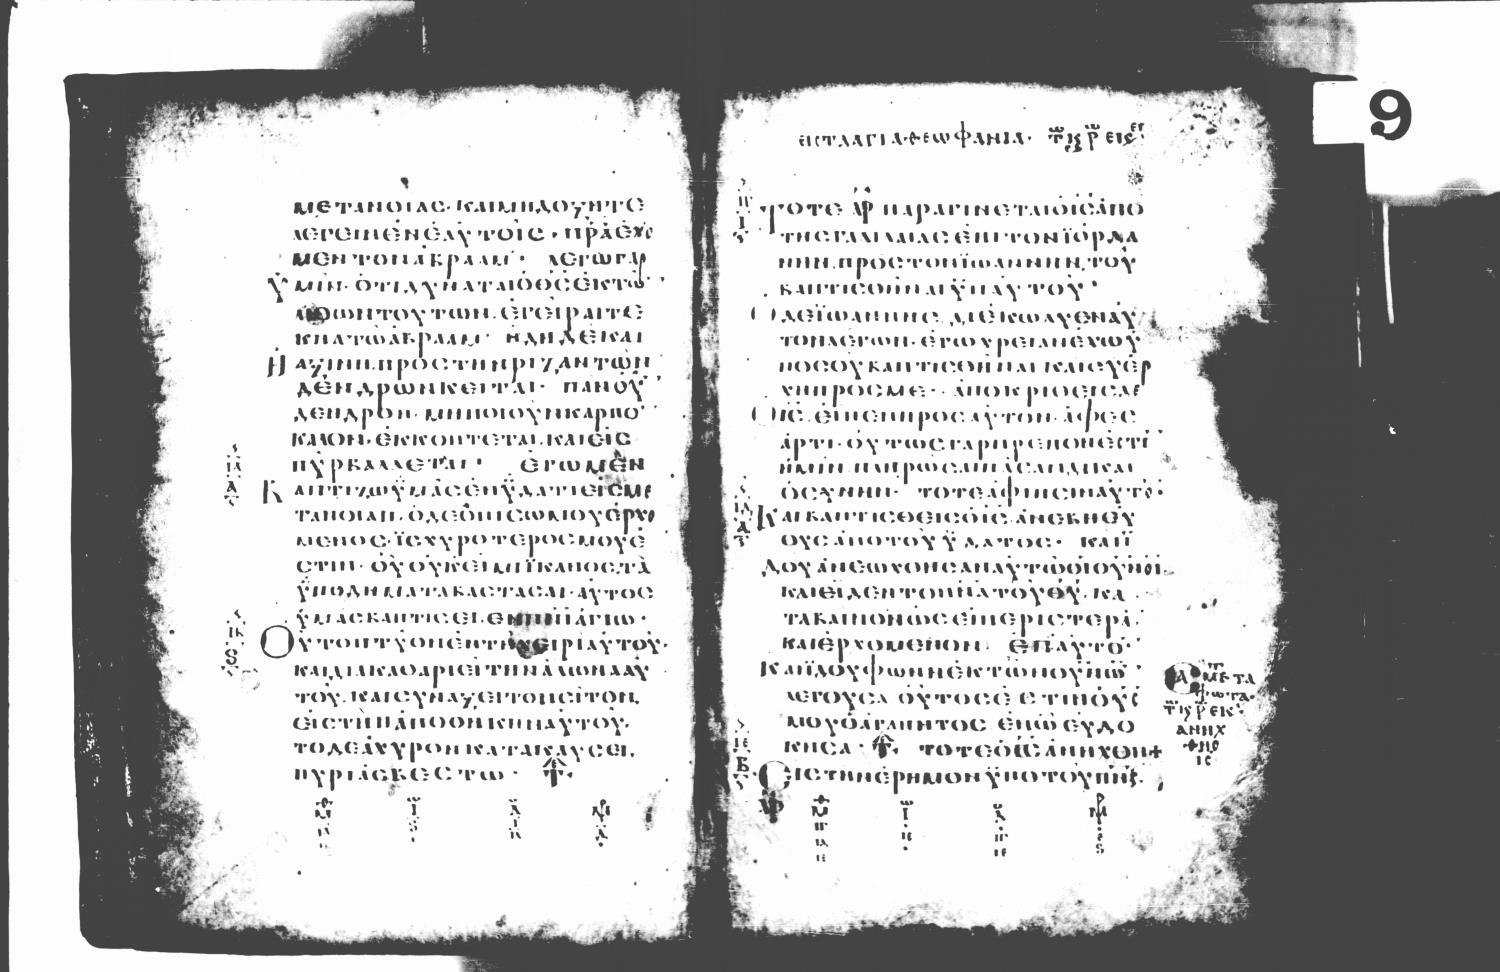 ΜΕΤΑΝΟΙΑΣ· ΚΑΙ ΜΗ ΔΟΞΗΤΕ
ΛΕΓΕΙΝ ΕΝ ΕΑΥΤΟΙΣ· ΠΡΑ ΕΧΟ
ΜΕΝ ΤΟΝ ΑΒΡΑΑΜ· ΛΕΓΩ ΓΑΡ
ΥΜΙΝ· ΟΤΙ ΔΥΝΑΤΑΙ Ο ΘΣ ΕΚ ΤΩ
ΛΙΘΩΝ ΤΟΥΤΩΝ ΕΓΕΙΡΑΙ ΤΕ
ΚΝΑ ΤΩ ΑΒΡΑΑΜ· ΗΔΗ ΔΕ ΚΑΙ
Η ΑΞΙΝΗ ΠΡΟΣ ΤΗΝ ΡΙΖΑΝ ΤΩΝ
ΔΕΝΔΡΩΝ ΚΕΙΤΑΙ· ΠΑΝ ΟΥ
ΔΕΝΔΡΟΝ· ΜΗ ΠΟΙΟΥΝ ΚΑΡΠΟ
ΚΑΛΟΝ· ΕΚΚΟΠΤΕΤΑΙ ΚΑΙ ΕΙΣ
ΠΥΡ ΒΑΛΛΕΤΑΙ· ΕΓΩ ΜΕΝ
ΒΑΠΤΙΖΩ ΥΜΑΣ ΕΝ ΥΔΑΤΙ ΕΙΣ ΜΕ
ΤΑΝΟΙΑΝ· Ο ΔΕ ΟΠΙΣΩ ΜΟΥ ΕΡΧΟ
ΜΕΝΟΣ· ΙΣΧΥΡΟΤΕΡΟΣ ΜΟΥ Ε
ΣΤΙΝ· ΟΥ ΟΥΚ ΕΙΜΙ ΙΚΑΝΟΣ ΤΑ
ΥΠΟΔΗΜΑΤΑ ΒΑΣΤΑΣΑΙ· ΑΥΤΟΣ
ΥΜΑΣ ΒΑΠΤΙΣΕΙ ΕΝ ΠΝΙ ΑΓΙΩ·
ΟΥ ΤΟ ΠΤΥΟΝ ΕΝ ΤΗ ΧΕΙΡΙ ΑΥΤΟΥ·
ΚΑΙ ΔΙΑΚΑΘΑΡΙΕΙ ΤΗΝ ΑΛΩΝΑ ΑΥ
ΤΟΥ· ΚΑΙ ΣΥΝΑΞΕΙ ΤΟΝ ΣΙΤΟΝ
ΕΙΣ ΤΗΝ ΑΠΟΘΗΚΗΝ ΑΥΤΟΥ·
ΤΟ ΔΕ ΑΧΥΡΟΝ ΚΑΤΑΚΑΥΣΕΙ
ΠΥΡΙ ΑΣΒΕΣΤΩ·
ΕΙΣ ΤΑ ΑΓΙΑ ΘΕΩΦΑΝΙΑ·
ΤΟΤΕ ΠΑΡΑΓΙΝΕΤΑΙ Ο ΙΣ ΑΠΟ
ΤΗΣ ΓΑΛΙΛΑΙΑΣ ΕΠΙ ΤΟΝ ΙΟΡΔΑ
ΝΗΝ ΠΡΟΣ ΤΟΝ ΙΩΑΝΝΗΝ ΤΟΥ
ΒΑΠΤΙΣΘΗΝΑΙ ΥΠ ΑΥΤΟΥ·
Ο ΔΕ ΙΩΑΝΝΗΣ ΔΙΕΚΩΛΥΕΝ ΑΥ
ΤΟΝ ΛΕΓΩΝ· ΕΓΩ ΧΡΕΙΑΝ ΕΧΩ Υ
ΠΟ ΣΟΥ ΒΑΠΤΙΣΘΗΝΑΙ ΚΑΙ ΣΥ ΕΡ
ΧΗ ΠΡΟΣ ΜΕ· ΑΠΟΚΡΙΘΕΙΣ ΔΕ
Ο ΙΣ ΕΙΠΕΝ ΠΡΟΣ ΑΥΤΟΝ· ΑΦΕΣ
ΑΡΤΙ· ΟΥΤΩΣ ΓΑΡ ΠΡΕΠΟΝ ΕΣΤΙ
ΗΜΙΝ ΠΛΗΡΩΣΑΙ ΠΑΣΑΝ ΔΙΚΑΙ
ΟΣΥΝΗΝ· ΤΟΤΕ ΑΦΙΗΣΙΝ ΑΥΤΟ·
ΚΑΙ ΒΑΠΤΙΣΘΕΙΣ Ο ΙΣ ΑΝΕΒΗ ΕΥ
ΘΥΣ ΑΠΟ ΤΟΥ ΥΔΑΤΟΣ· ΚΑΙ Ι
ΔΟΥ ΑΝΕΩΧΘΗΣΑΝ ΑΥΤΩ ΟΙ ΟΥΝΟΙ
ΚΑΙ ΕΙΔΕΝ ΤΟ ΠΝΑ ΤΟΥ ΘΥ· ΚΑ
ΤΑΒΑΙΝΟΝ ΩΣΕΙ ΠΕΡΙΣΤΕΡΑ·
ΚΑΙ ΕΡΧΟΜΕΝΟΝ ΕΠ ΑΥΤΟ·
ΚΑΙ ΙΔΟΥ ΦΩΝΗ ΕΚ ΤΩΝ ΟΥΝΩ
ΛΕΓΟΥΣΑ ΟΥΤΟΣ ΕΣΤΙΝ Ο ΥΣ
ΜΟΥ Ο ΑΓΑΠΗΤΟΣ ΕΝ Ω ΕΥΔΟ
ΚΗΣΑ· ΤΟΤΕ Ο ΙΣ ΑΝΗΧΘΗ
ΕΙΣ ΤΗΝ ΕΡΗΜΟΝ ΥΠΟ ΤΟΥ ΠΝΣ
ΜΕΤΑ
ΦΩΤΑ
ΑΝΗΧ
9